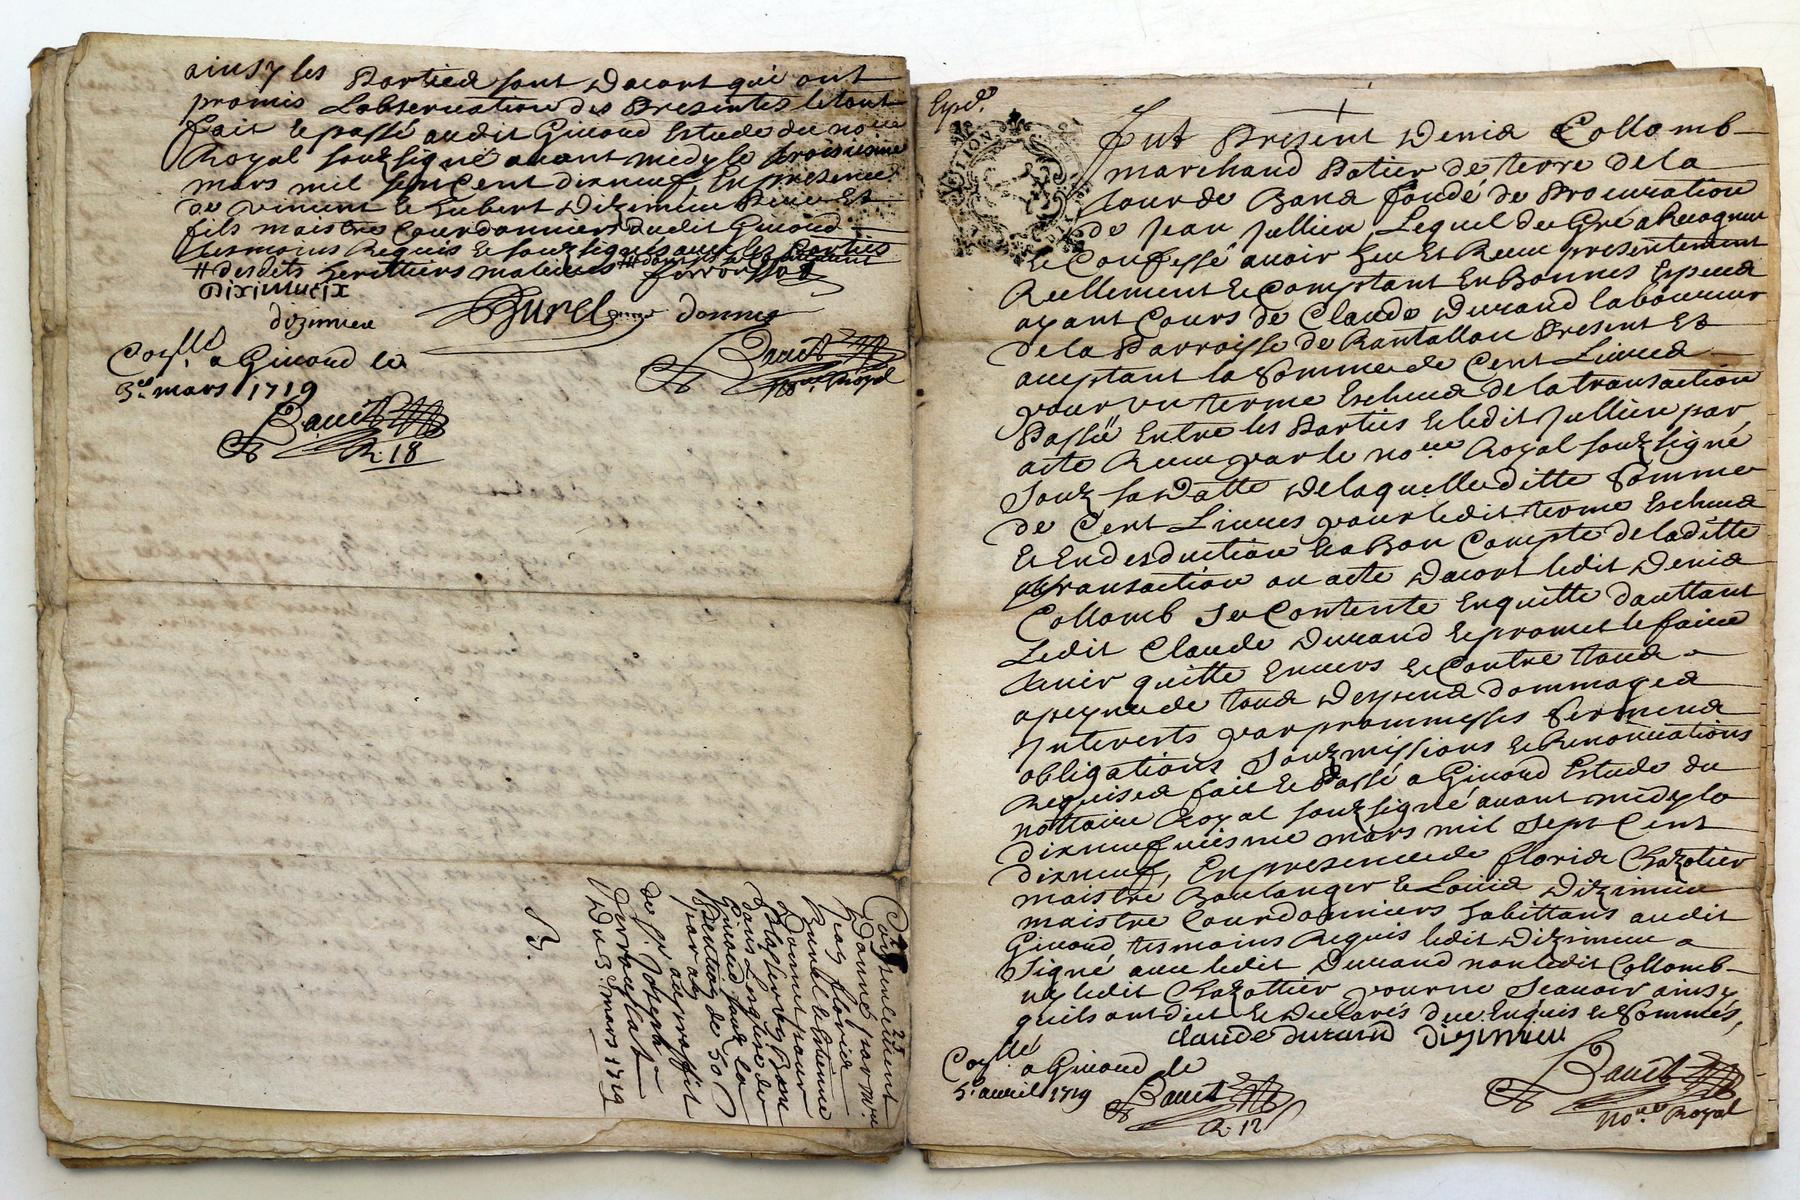 ainsy les Parties sont Dacort qui ont
promis Lobseruation des Presentes le tout
fait & passé audit Giuord Estude du nore
Royal souzsigné auant midy le troisieme
mars mil sept Cent dixneuf, En presence
de vincent & hubert Dizimieu Pere Et
fils maistres Courdonniers dudit Giuord
tesmoins Requis & souzsignés auec les Parties
# desdits heritiers
Diximieux
dizimieu
Burel
donnet
Coll.é a Giuord le
3.e mars 1719
Bauct
R. 18
Bauct
No.re Royal
23
Consentement
donné par Mre
Jean florid
Burel & Estienne
Donnet pour
placer vng Banc
dans Lesglise de
Giuord souz la
Pention de 50 s
par an
au proffit
de s.r Joseph
ferroussat
Du 3.e mars 1719
Exped.é
Fut Present Denis Collomb
marchand Potier de terre de la
tour de Bans fondé de Procuration
de Jean Jullien, Lequel de Gré a Recogneu
& Confessé auoir heu Et Receu presentement
Reellement & Comptant En Bonnes Especes
ayant Cours de Claude Durand laboureur
de la Parroisse de Rantallon Present Et
acceptant la Somme de Cent Liures
pour vn terme Escheus de la transaction
Passéé Entre les Parties & ledit Jullien par
acte Receu par le nore Royal souzsigné
Souz sa Datte De laquelle ditte Somme
de Cent Liures pour ledit terme Escheus
& En desduction & a Bon Compte de laditte
transaction ou acte Dacort ledit Denis
Collomb Se Contente En quitte dauttant
Ledit Claude Durand & promet le faire
tenir quitte Enuers & Contre tous
a peyne de tous Despens dommages
Interests par prommesses Sermens
obligations Souzmissions & Renonciations
Requises fait & Passé a Giuord Estude du
nottaire Royal souzsigné auant midy le
dixneufuiesme mars mil Sept Cent
dixneuf, En presence de florid Chazotier
maistre Boulanger & Louis Dizimieu
maistre Courdonniers habittans audit
Giuord tesmoins Requis ledit Dizimieu a
Signé auec ledit Durand non ledit Collomb
ny ledit Chazottier pour ne Scauoir ainsy
quils ont dit & Declarés deüe. Enquis & Sommés,
claude durand dizimieu
Coll.é a Giuord le
5.e auril 1719
Bauct
R. 12
Bauct
No.re Royal